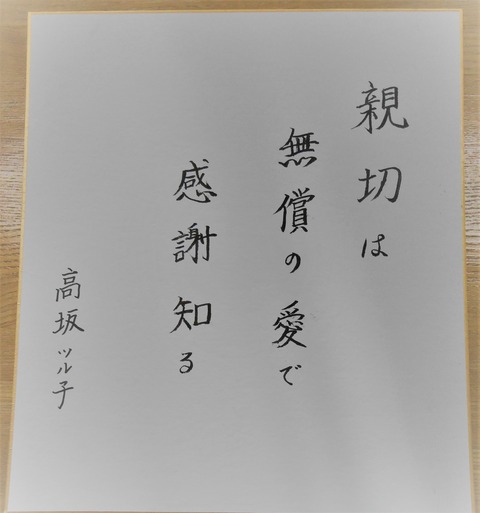 親切は
無償の愛で
感謝知る
高坂ツル子